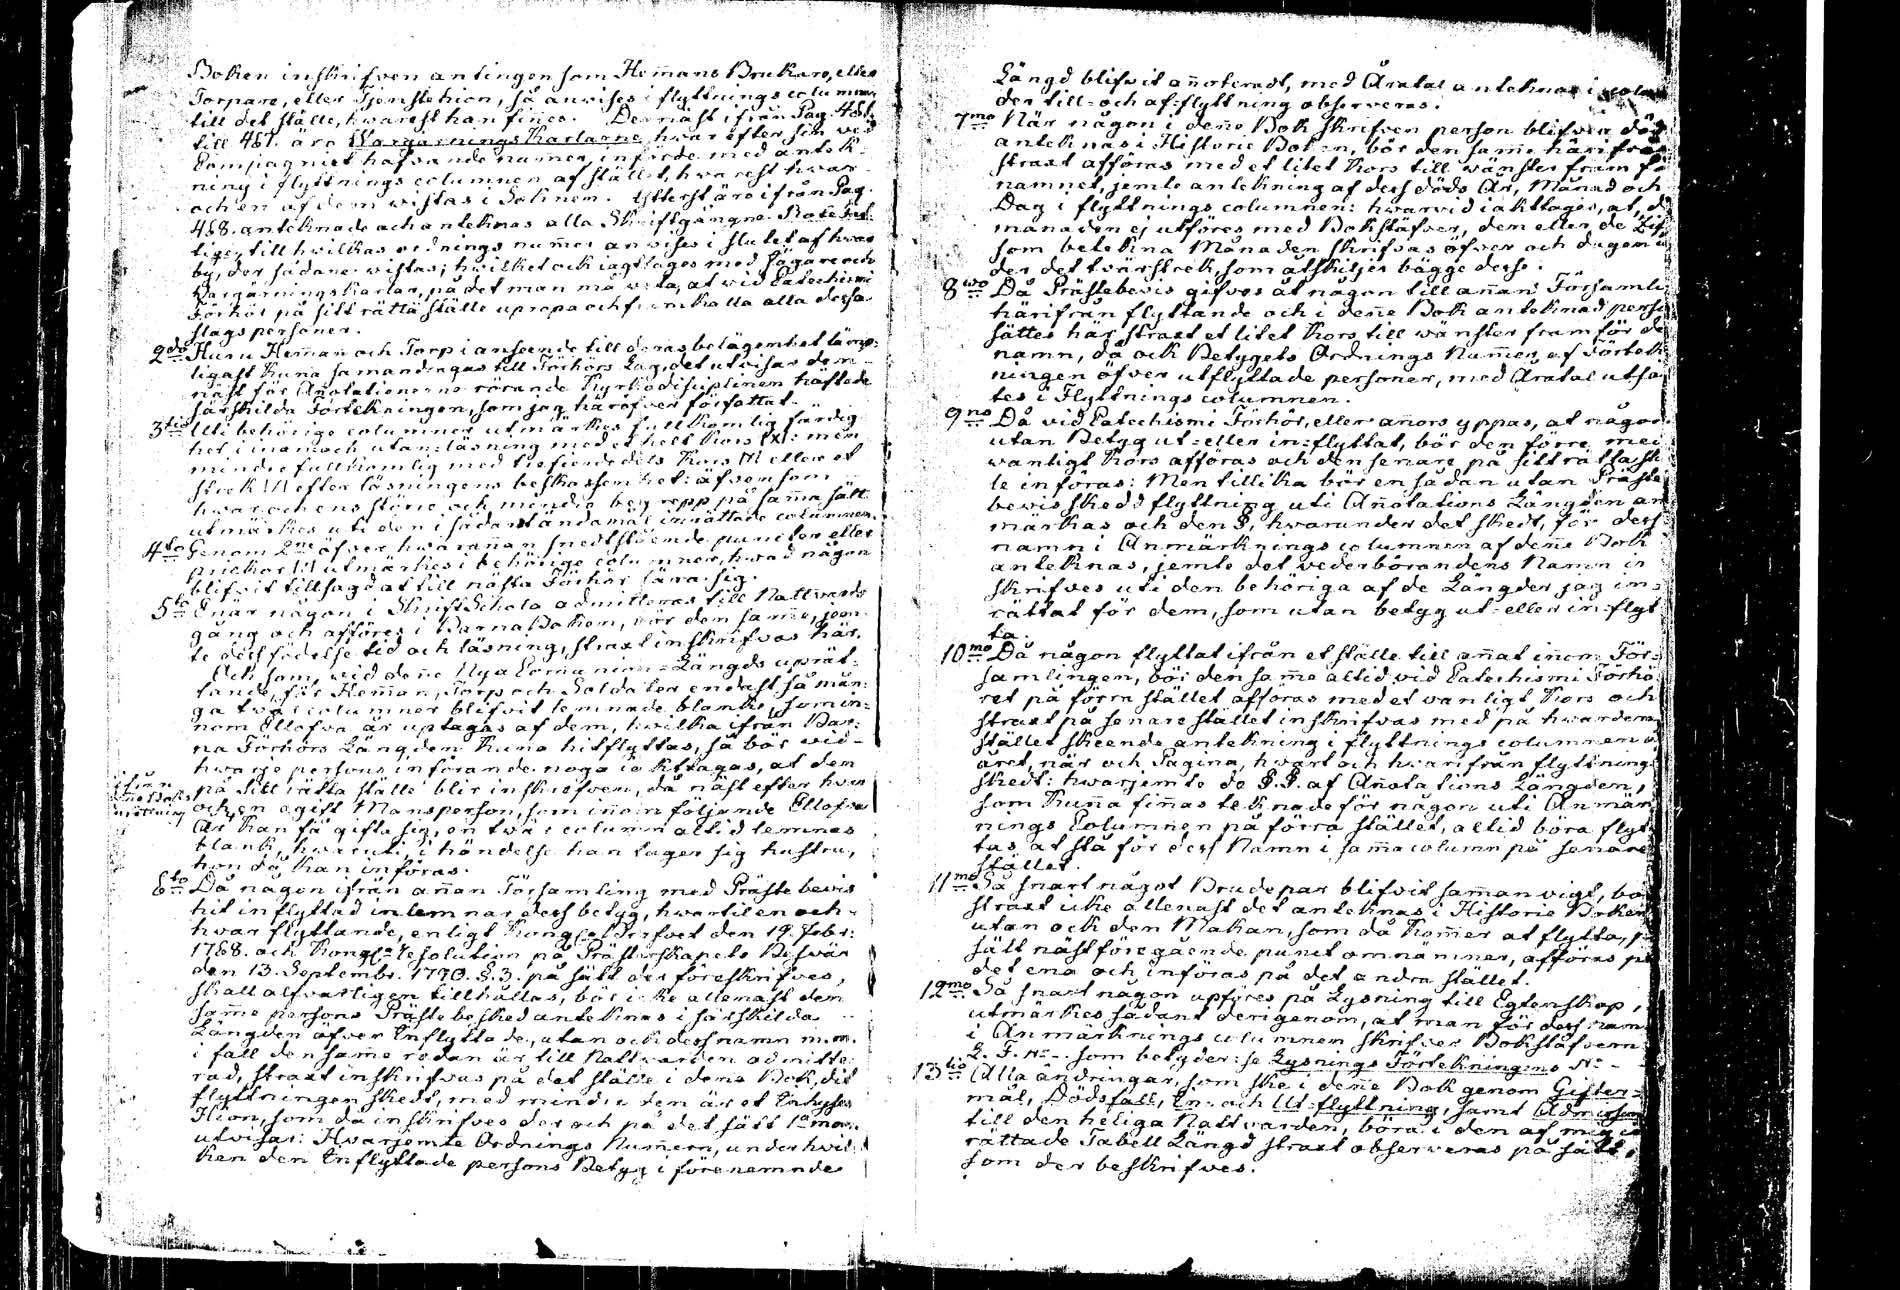 Boken inskrifven antingen som Hem̄ans Brukare, eller
Torpare, eller Tjenstehion, så anvises i flyttnings columnen,
till det ställe, hwarest han fin̄es. Dernäst ifrån Pag.
till 487. äro Wargärnings Karlarne, hvarefter sin ved
Compagniet hafvande num̄er, införde med anteck-
ning i flyttnings columnen af stället, hvarest hvar
och en af dem vistas i Soknen. Ytterst äro ifrån Pag.
488. anteknade och anteknas alla Skriftgångne Rotefat-
tige, till hwilkas ordnings num̄er anvises i slutet af hvar
by, der sådane vistas; hwilket ock iagttages med Jägare och
Wargärningskarlar, på det man må veta, at vid Catechismi
Förhör på sitt rätta ställe upropa och framkalla alla dessa
slags personer.
2do Huru Hem̄an och Torp i anseende till deras belägenhet lämp-
ligast kun̄a sammandragas till Förhörs Lag, det utvisar den
näst för An̄otationerne rörande Kyrkodisciplinen häftade
särskilda Förtekningen, som jag häröfver författat.
3tio Uti behörige columner utmärkes fullkomlig färdig-
het i inan och utan-läsning med et helt Kors |X|: men
mindre fullkomlig med trefierdedels Kors eller et
strek |/| efter läsningens beskaffenhet: äfven som
hvar och ens större och mindre begrepp på sam̄a sätt
utmärkes uti den i sådant ändamål inrättade columnen.
4to Genom 2ne öfver hwaran̄an snedt stående puncter eller
prickar utmärkes i behörige columner, hvad någon
blifvit tillsagd at till nästa Förhör lära sig.
5to Enär någon i SkriftSchola admitteras till Nattvards
gång och afföres i Barna Boken, bör den sam̄e, jem-
te dess födelse tid och läsning, strax inskrifvas här.
Och som, vid den̄e Nya Com̄union-Längds uprät-
tande, för Hem̄an, Torp och Soldater endast så mån-
ga tvär columner blifvit lemnade blanke, som in-
nom Ellofva år uptagas af dem, hwilka ifrån Bar-
na Förhörs Längden kun̄a hitflyttas, så bör vid
hwarje persons införande noga iakttagas, at den
på sitt rätta ställe blir inskrifven, då näst efter hvar
och en ogift Mansperson, som in̄om följande Ellofva
År kan få gifta sig, en twär column altid lemnas
blank, hwaruti, i händelse han tager sig hustru,
hon då kan införas.
6to Då någon ifrån an̄an Församling med Prästebevis
hit inflyttad inlemnar dess betyg, hwartil en och
hvar flyttande, enligt Kongl. Brefvet den 19. Febr:
1768. och Kongl. Resolution på Prästerskapets Besvär
den 13. Septembr. 1770. §.3. på sätt der föreskrifves,
skall alfvarligen tillhållas, bör icke allenast den
sam̄e persons Prästebesked anteknas i särskilda
Längden öfver Inflyttade, utan ock dess namn m.m.
i fall den sam̄e redan är till Nattvarden admitte-
rad, strax inskrifvas på det ställe i den̄a Bok, dit
flyttningen skedt, med mindre den är et Inhyses
Hion, som då inskrifves der och på det sätt 1mo
utvisar: Hvarjemte Ordnings Num̄ern, under hvil-
ken den Inflyttade persons Betyg i förenemnde
Längd blifvit an̄oteradt, med Åratal anteknas i
der till- och af-flyttning observeras.
7mo När någon i den̄e Bok skrifven person blifver död
anteknas i Historie Boken, bör den sam̄e härifrån
strax afföras med et litet Kors till wänster framför
namnet, jemte antekning af dess döds År, Månad och
Dag i flyttnings columnen: hwarvid iakttages, at
månaden ej utföres med Bokstäfver, den eller de
som betekna Månaden skrifvas öfver och dagen
der det tvärstrek, som åtskiljer bägge desse.
8vo Då Prästebevis gifves åt någon till an̄an Församling
härifrån flyttande och i den̄e Bok anteknad person
sättes här strax et litet Kors till wänster framför
namn, då ock Betygets Ordnings Num̄er af Förtek-
ningen öfver utflyttade personer, med Åratal utsä-
tes i Flyttnings columnen.
9no Då vid Catechismi Förhör, eller an̄ors yppas, at någon
utan Betyg ut- eller in-flyttat, bör den förre med
wanligt Kors afföras och den senare på sitt rätta stäl-
le införas: Men tillika bör en sådan utan Präste-
bevis skedd flyttning uti An̄otations Längden an-
märkas och den §, hwarunder det skedt, för dess
namn i Anmärknings columnen af den̄e Bok
anteknas, jemte det vederbörandens Namn in-
skrifves uti den behöriga af de Längder jag in-
rättat för dem, som utan betyg ut- eller in-flyt-
ta.
10mo Då någon flyttat ifrån et ställe till an̄at in̄om För-
samlingen, bör den sam̄e altid vid Catechismi Förhö-
ret på förra stället afföras med et vanligt Kors och
strax på senare stället inskrifvas med på hvardera
stället skeende antekning i flyttnings columnen
året, när och Pagina, hwart och hvarifrån flyttning
skedt: hwarjemte de §.§. af An̄otations Längden,
som kun̄a fin̄as teknade för någon uti Anmärk-
nings Columnen på förra stället, altid böra flyt-
tas at stå för dess Namn i sam̄a column på senare
stället.
11mo Så snart något Brudepar blifvit sam̄anvigt, bör
strax icke allenast det anteknas i Historie Boken
utan ock den Makan, som då kom̄er at flytta, på
sätt näst föregående punct omnämner, afföras på
det ena och införas på det andra stället.
12mo Så snart någon upföres på Lysning till Egtenskap,
utmärkes sådant derigenom, at man för dess namn
i Anmärknings columnen skrifver Bokstäfvern
L. F. No - - som betyder: se Lysnings Förteckningens No - -
13tio Alla ändringar, som ske i den̄e Bok genom Gifter-
mål, Dödsfall, In- och Ut-flyttning, samt Admission
till den heliga Nattvarden, böra i den af mig in-
rättade Tabell Längd strax observeras på sätt,
som der beskrifves.